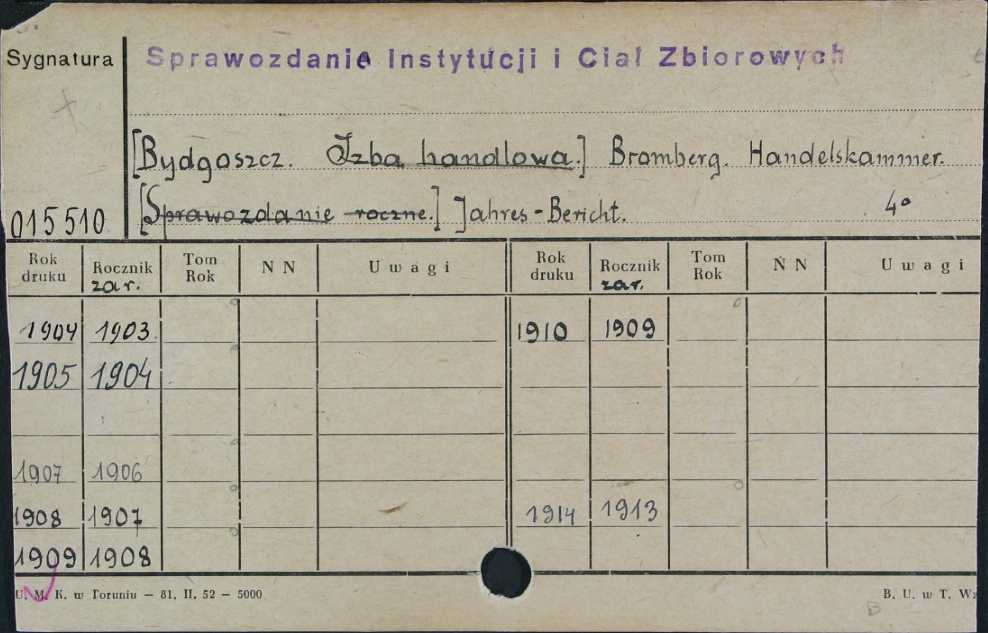 Sygnatura
Sprawozdanie Instytucji i Ciał Zbiorowych
[Bydgoszcz. Izba handlowa.] Bromberg. Handelskammer.
015510 [Sprawozdanie roczne.] Jahres-Bericht. 4°
Rok druku Rocznik zar. Tom Rok N N Uwagi Rok druku Rocznik zar. Tom Rok N N Uwagi
1904 1903 1910 1909
1905 1904
1907 1906
1908 1907 1914 1913
1909 1908
U. M. K. w Toruniu — 81. II. 52 — 5000 B. U. w T.